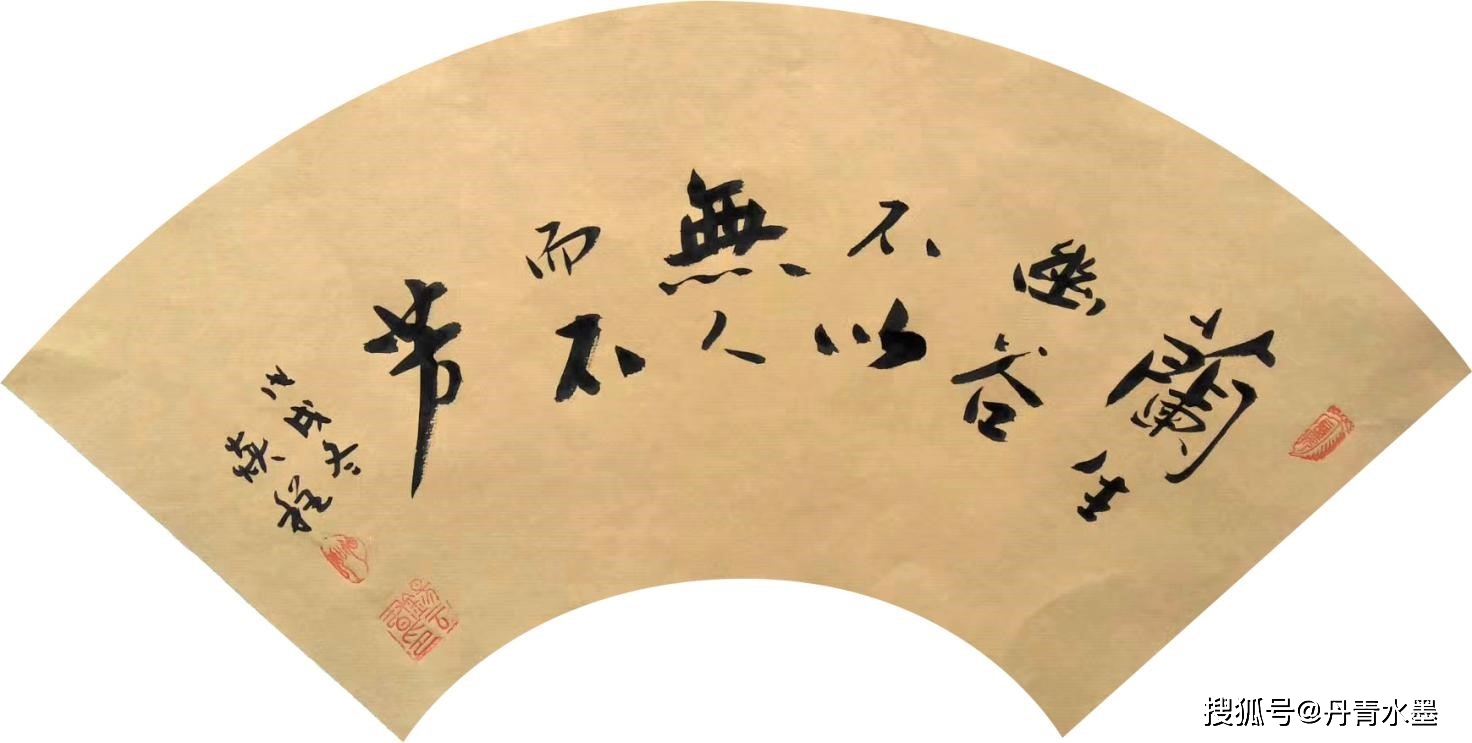 蘭生
幽谷
不以
無人
而不
芳
戊戌冬
搜狐号@丹青水墨